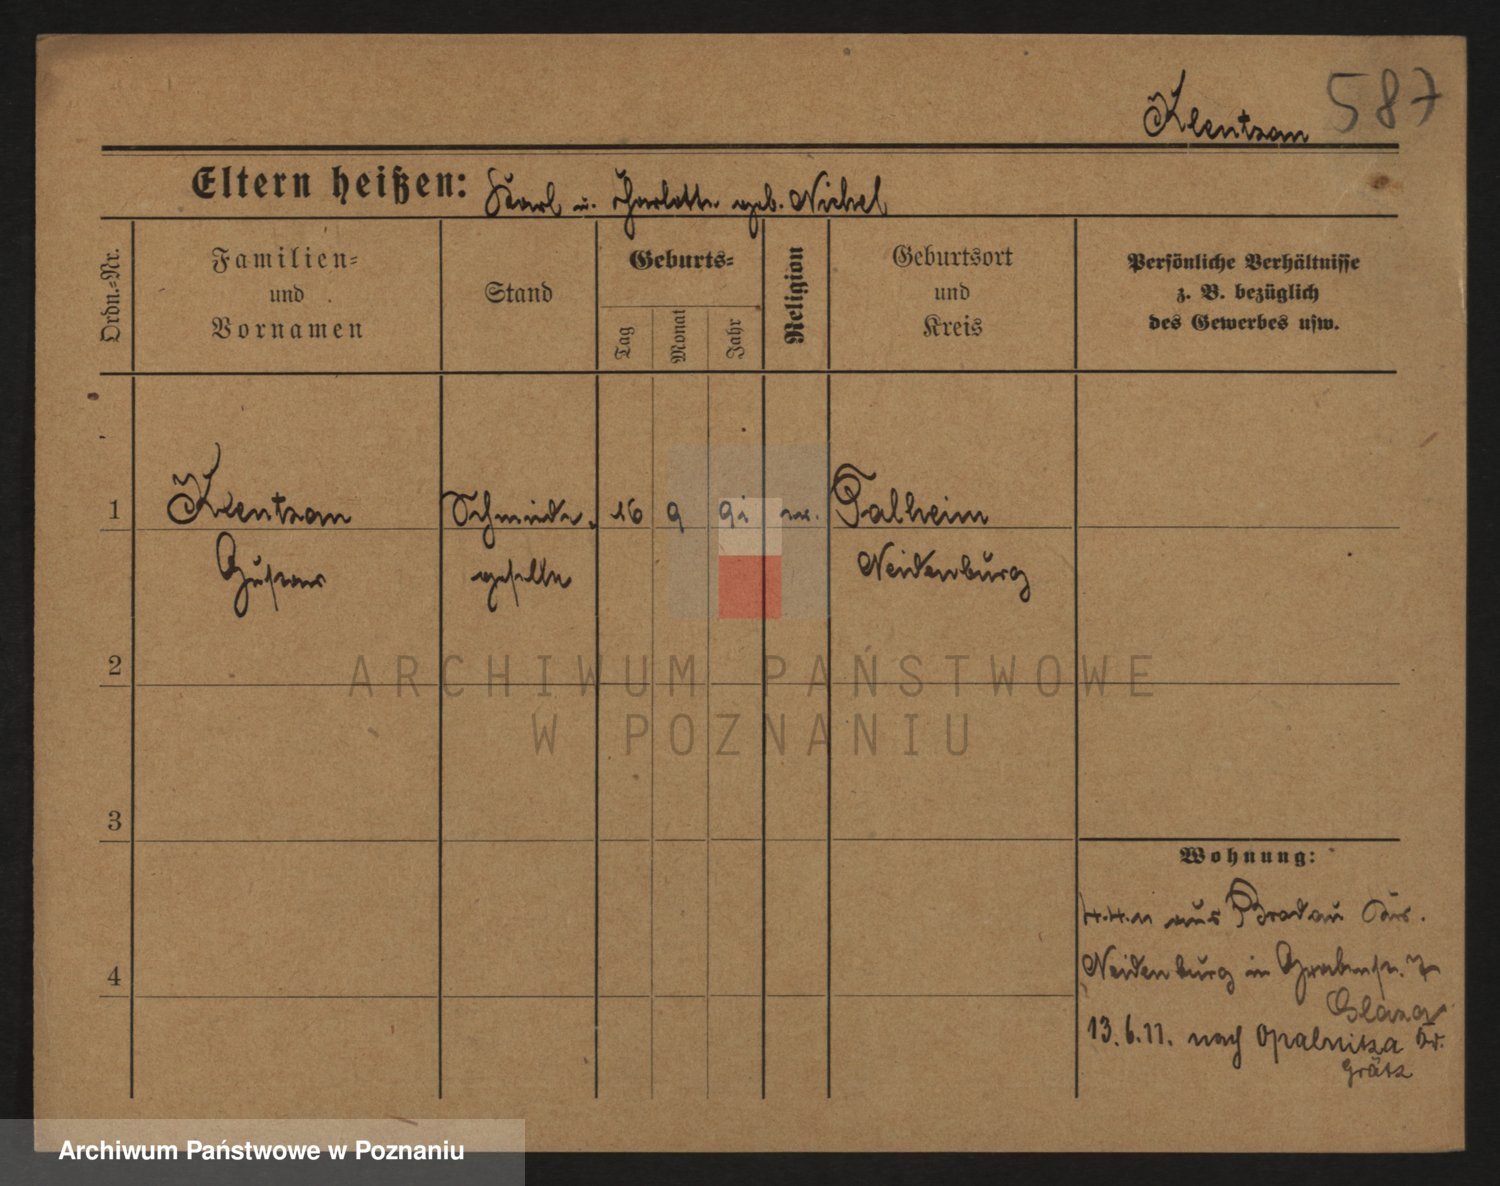 587
Klentzan
Eltern heißen: Karl u. Charlotte geb. Nickel
Ordn.=Nr.
Familien=
und
Vornamen
Stand
Geburts=
Tag
Monat
Jahr
Religion
Geburtsort
und
Kreis
Persönliche Verhältnisse
z. B. bezüglich
des Gewerbes usw.
1
Klentzan
Gustav
Schmiede-
geselle
16
9
91
ev.
Talheim
Neidenburg
2
ARCHIWUM PAŃSTWOWE
W POZNANIU
3
Wohnung:
4.4.11 aus Brodau Krs.
Neidenburg in Grabenstr. 7
4
13.6.11. nach Opalnitza Kr.
Grätz
Archiwum Państwowe w Poznaniu